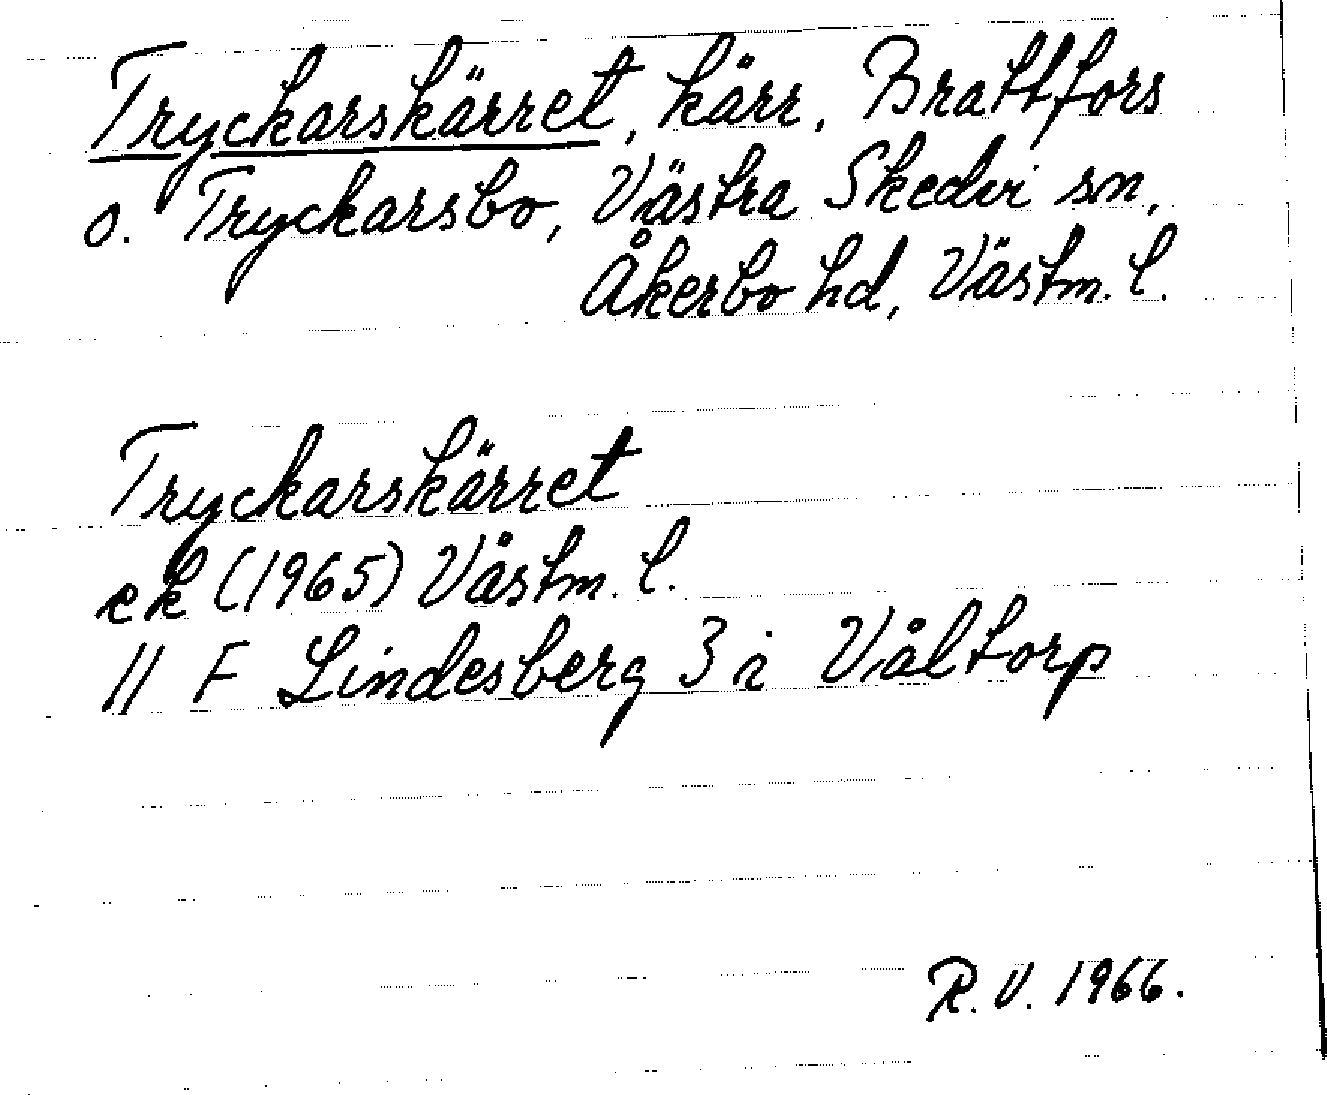 Tryckarskärret, kärr, Brattfors
o. Tryckarsbo, Västra Skedvi sn,
Åkerbo hd, Västm. l.
Tryckarskärret
ek (1965) Västm. l.
11 F Lindesberg 3 i Våltorp
R.V. 1966.